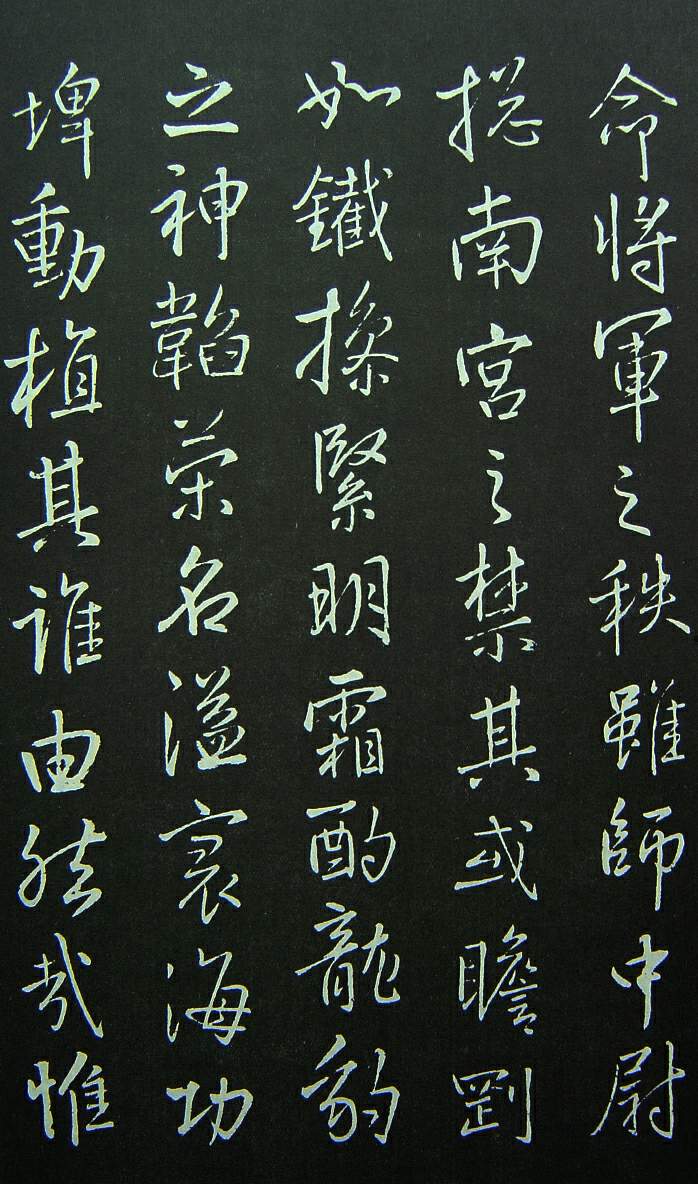 命將軍之秩雖師中尉
揔南宮之禁其或瞻㓻
如鐵操緊明霜酌龍豹
之神韜榮名溢寰海功
埤動植其誰由然哉惟